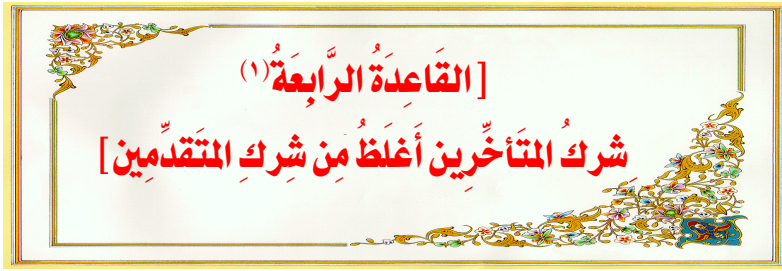 [القَاعِدَةُ الرَّابِعَةُ(١)
شِركُ المتَأخِّرِين أَغلَظُ مِن شِركِ المتَقدِّمِين]